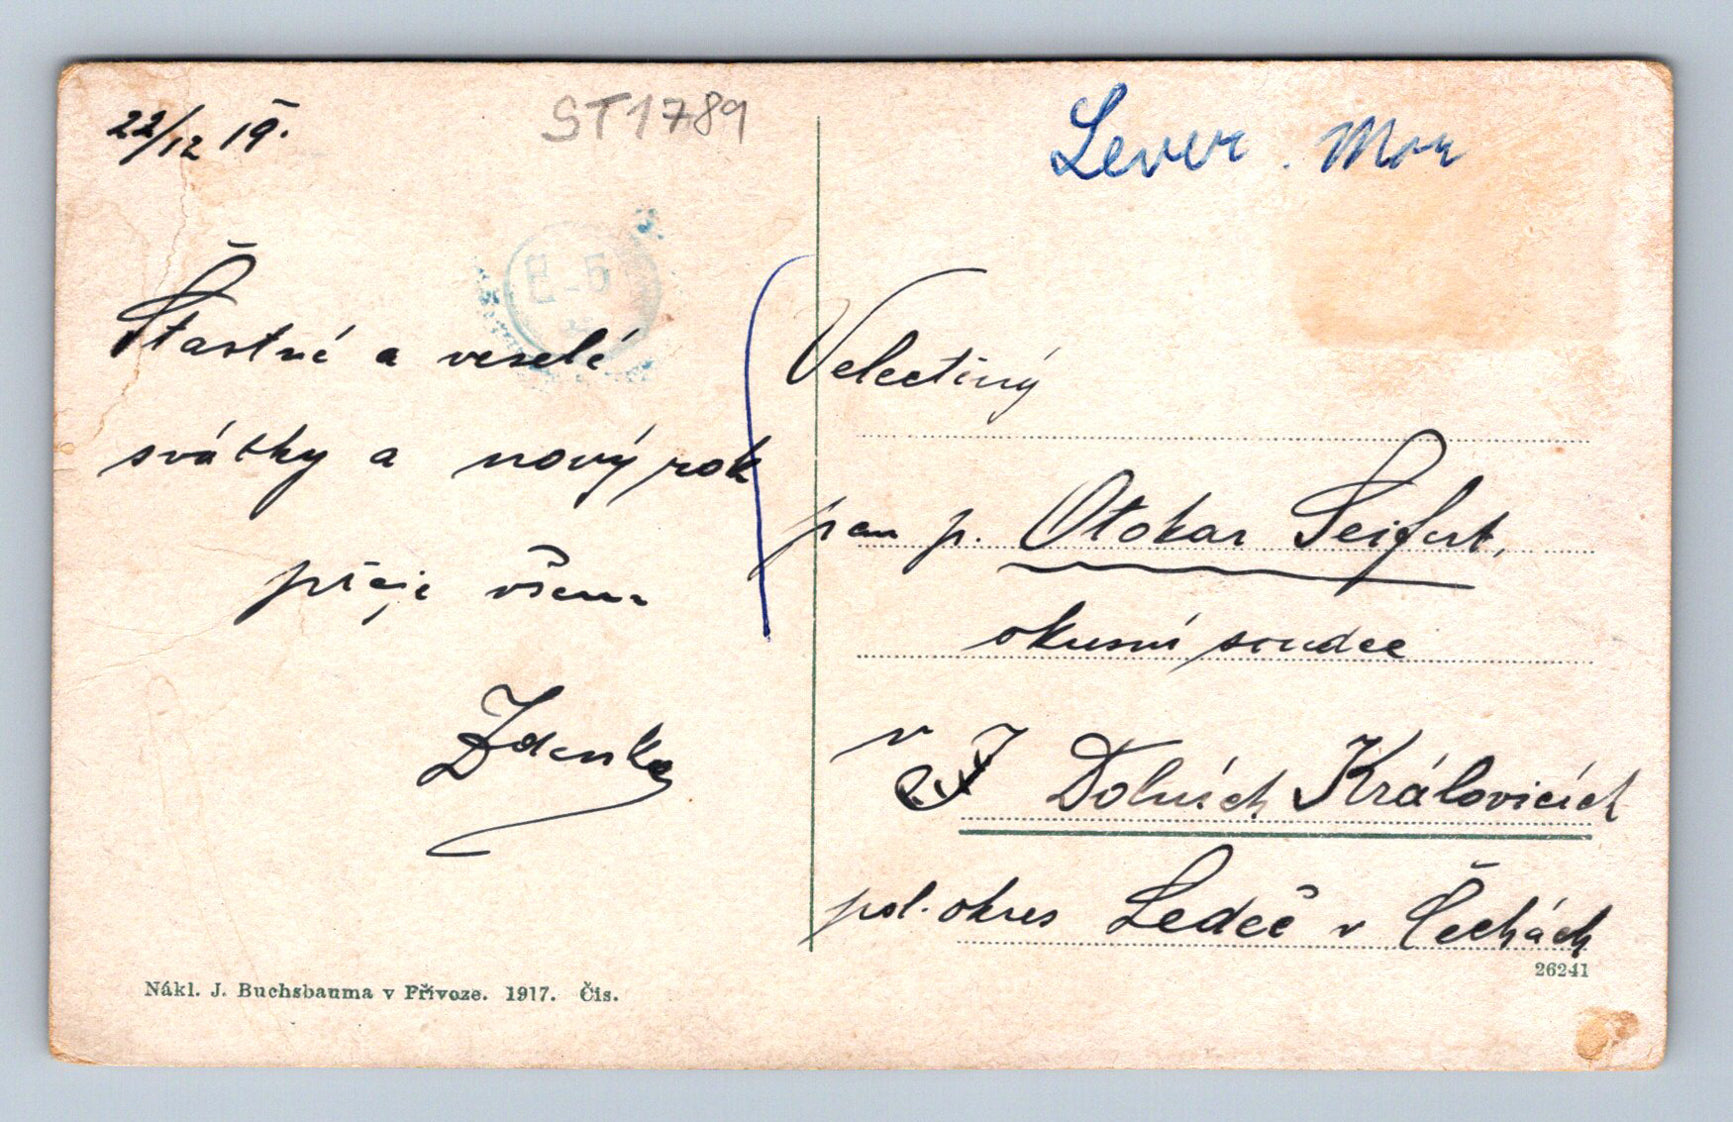 22/12 19.
ST1789
Šťastné a veselé
svátky a nový rok
přeje všem
Zdenka
Nákl. J. Buchsbauma v Přívoze. 1917. Čís.
Velectěný
pan p. Otokar Seifert,
okresní soudce
v
Dolních Královicích
pol. okres Ledeč v Čechách
26241